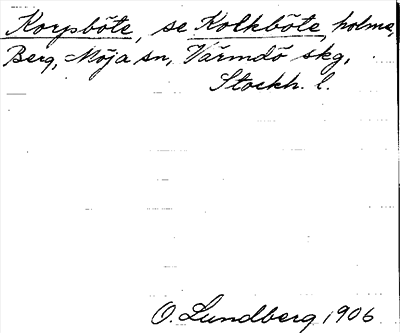 Korpböte, se Kolkböte, holme,
Berg, Möja sn, Värmdö skg,
Stockh. l.
O. Lundberg 1906